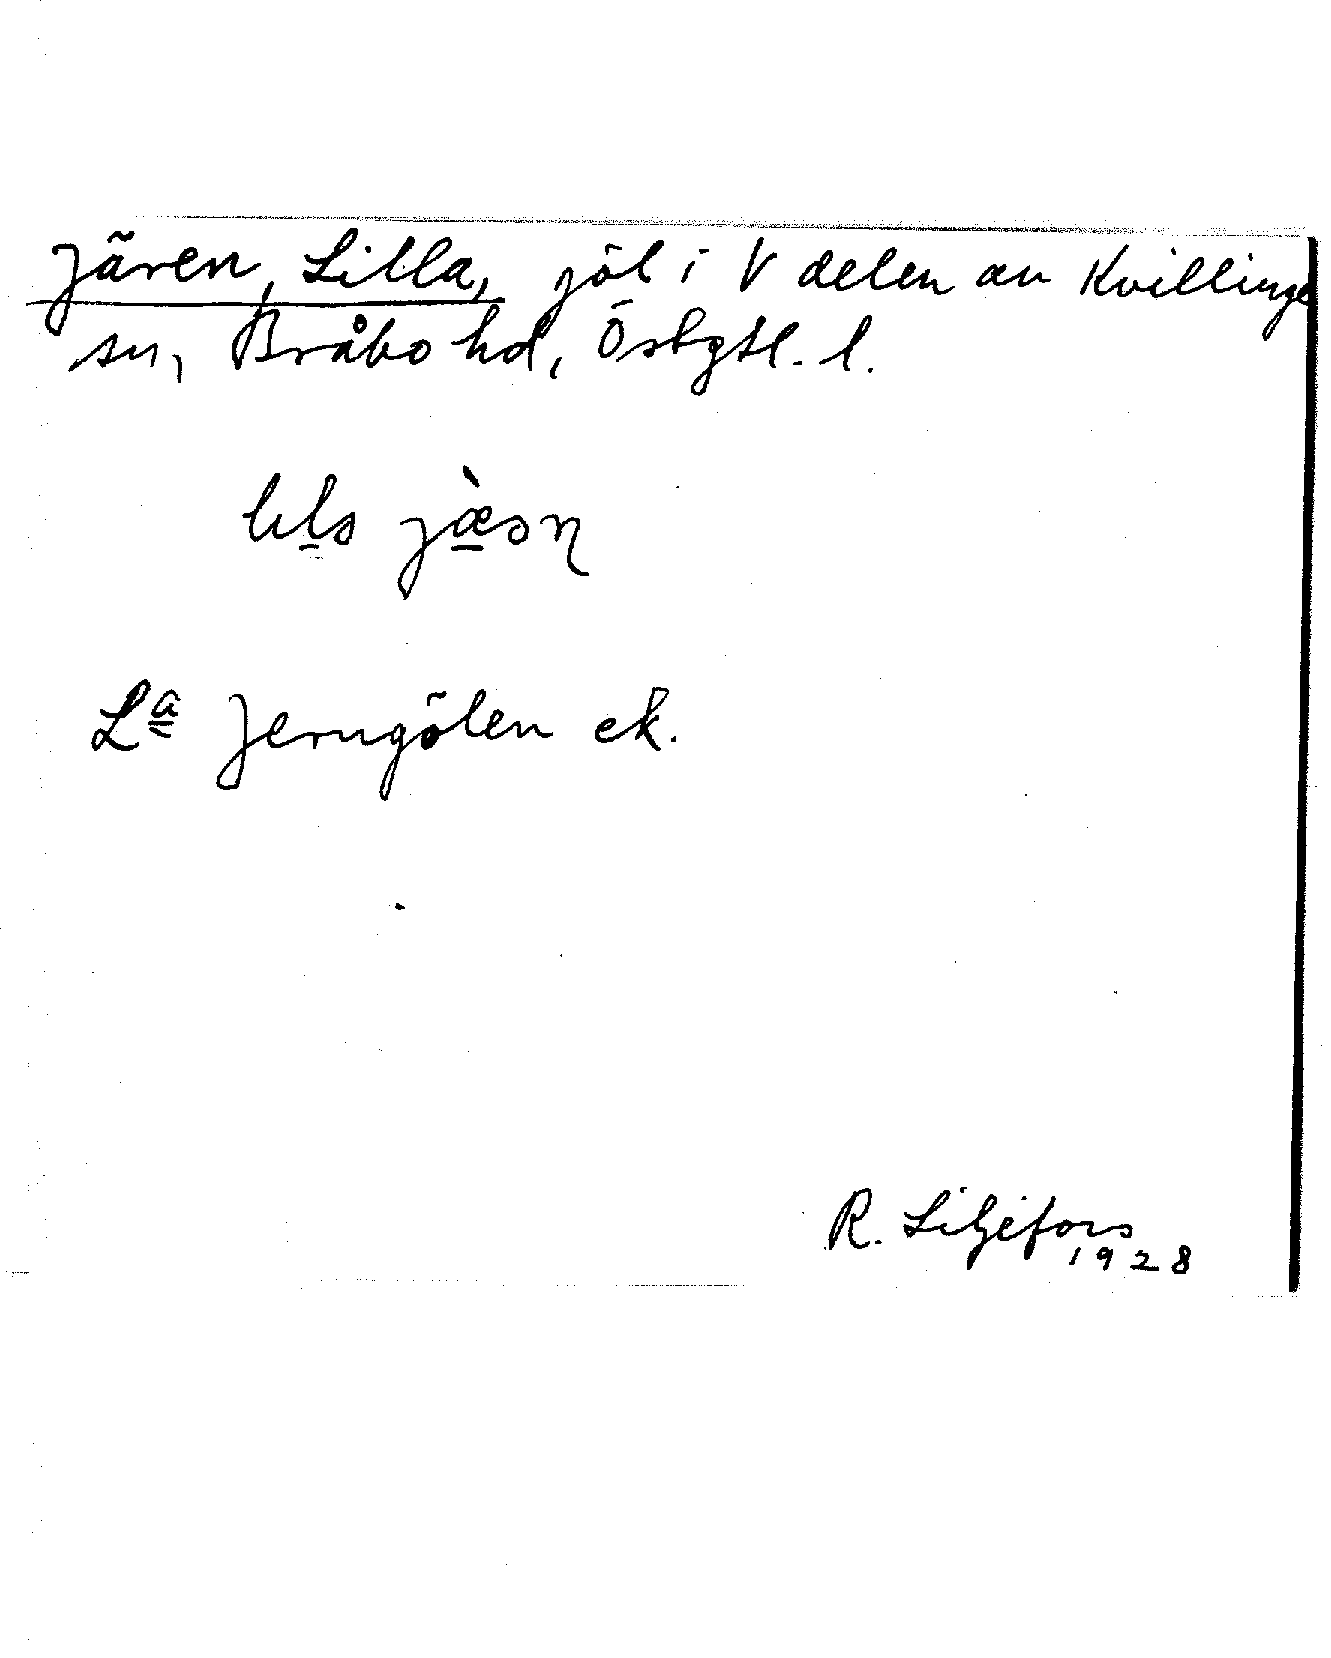 Jären, Lilla, jöl i V delen av Kvillinge
sn, Bråbo hd, Östgtl. l.
Lª Jerngölen ek.
R. Liljefors
1928